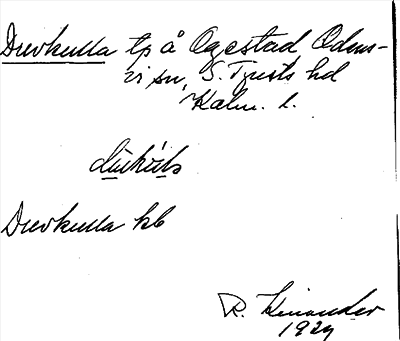 Duvkulla tp å Ogestad Odens-
vi sn, S. Tjusts hd
Kalm. l.
Duvkulla kb
R. Kinander
1929